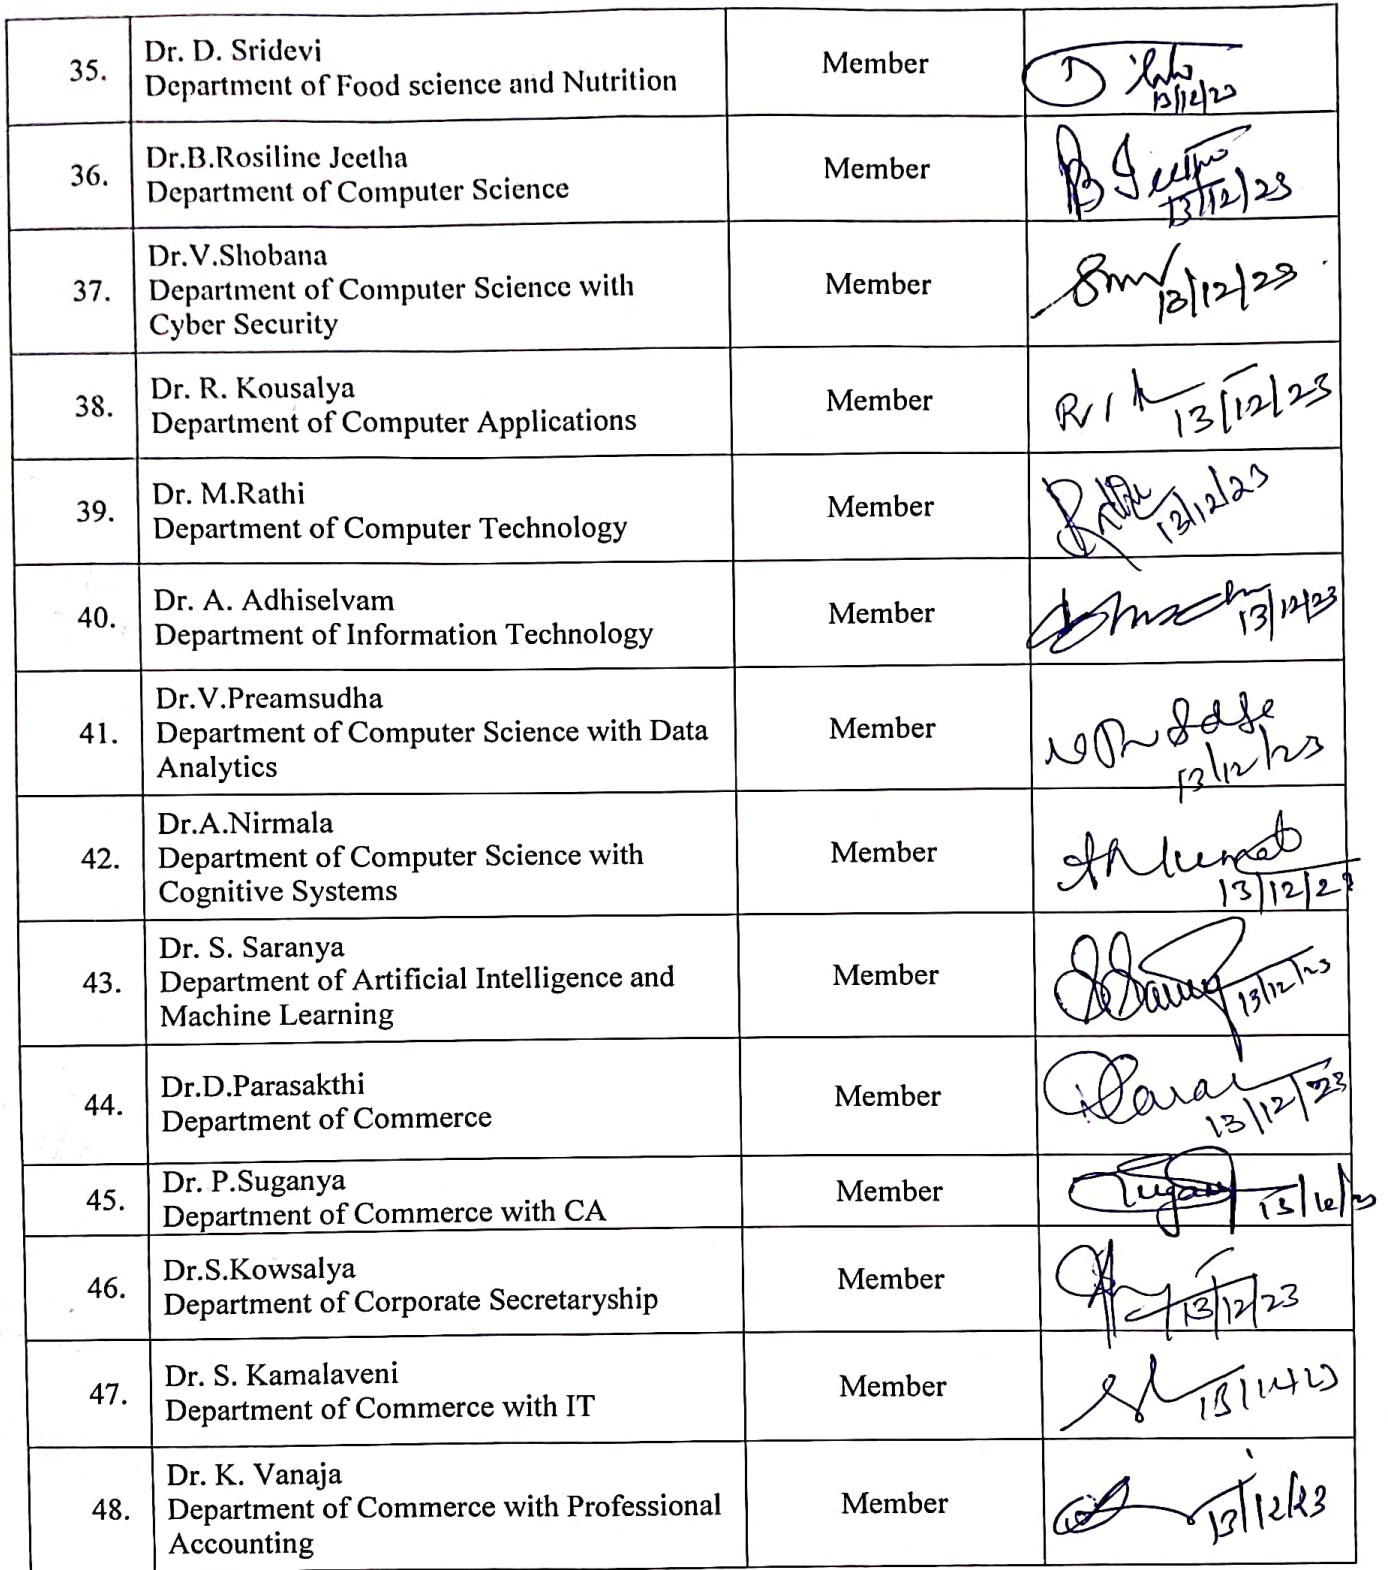 35.
Dr. D. Sridevi
Department of Food science and Nutrition
Member
13/12/23
36.
Dr.B.Rosiline Jeetha
Department of Computer Science
Member
B Jeetha
13/12/23
37.
Dr.V.Shobana
Department of Computer Science with
Cyber Security
Member
13/12/23
38.
Dr. R. Kousalya
Department of Computer Applications
Member
13/12/23
39.
Dr. M.Rathi
Department of Computer Technology
Member
13/12/23
40.
Dr. A. Adhiselvam
Department of Information Technology
Member
13/12/23
41.
Dr.V.Preamsudha
Department of Computer Science with Data
Analytics
Member
13/12/23
42.
Dr.A.Nirmala
Department of Computer Science with
Cognitive Systems
Member
13/12/23
43.
Dr. S. Saranya
Department of Artificial Intelligence and
Machine Learning
Member
13/12/23
44.
Dr.D.Parasakthi
Department of Commerce
Member
13/12/23
45.
Dr. P.Suganya
Department of Commerce with CA
Member
13/12/23
46.
Dr.S.Kowsalya
Department of Corporate Secretaryship
Member
13/12/23
47.
Dr. S. Kamalaveni
Department of Commerce with IT
Member
13/12/23
48.
Dr. K. Vanaja
Department of Commerce with Professional
Accounting
Member
13/12/23